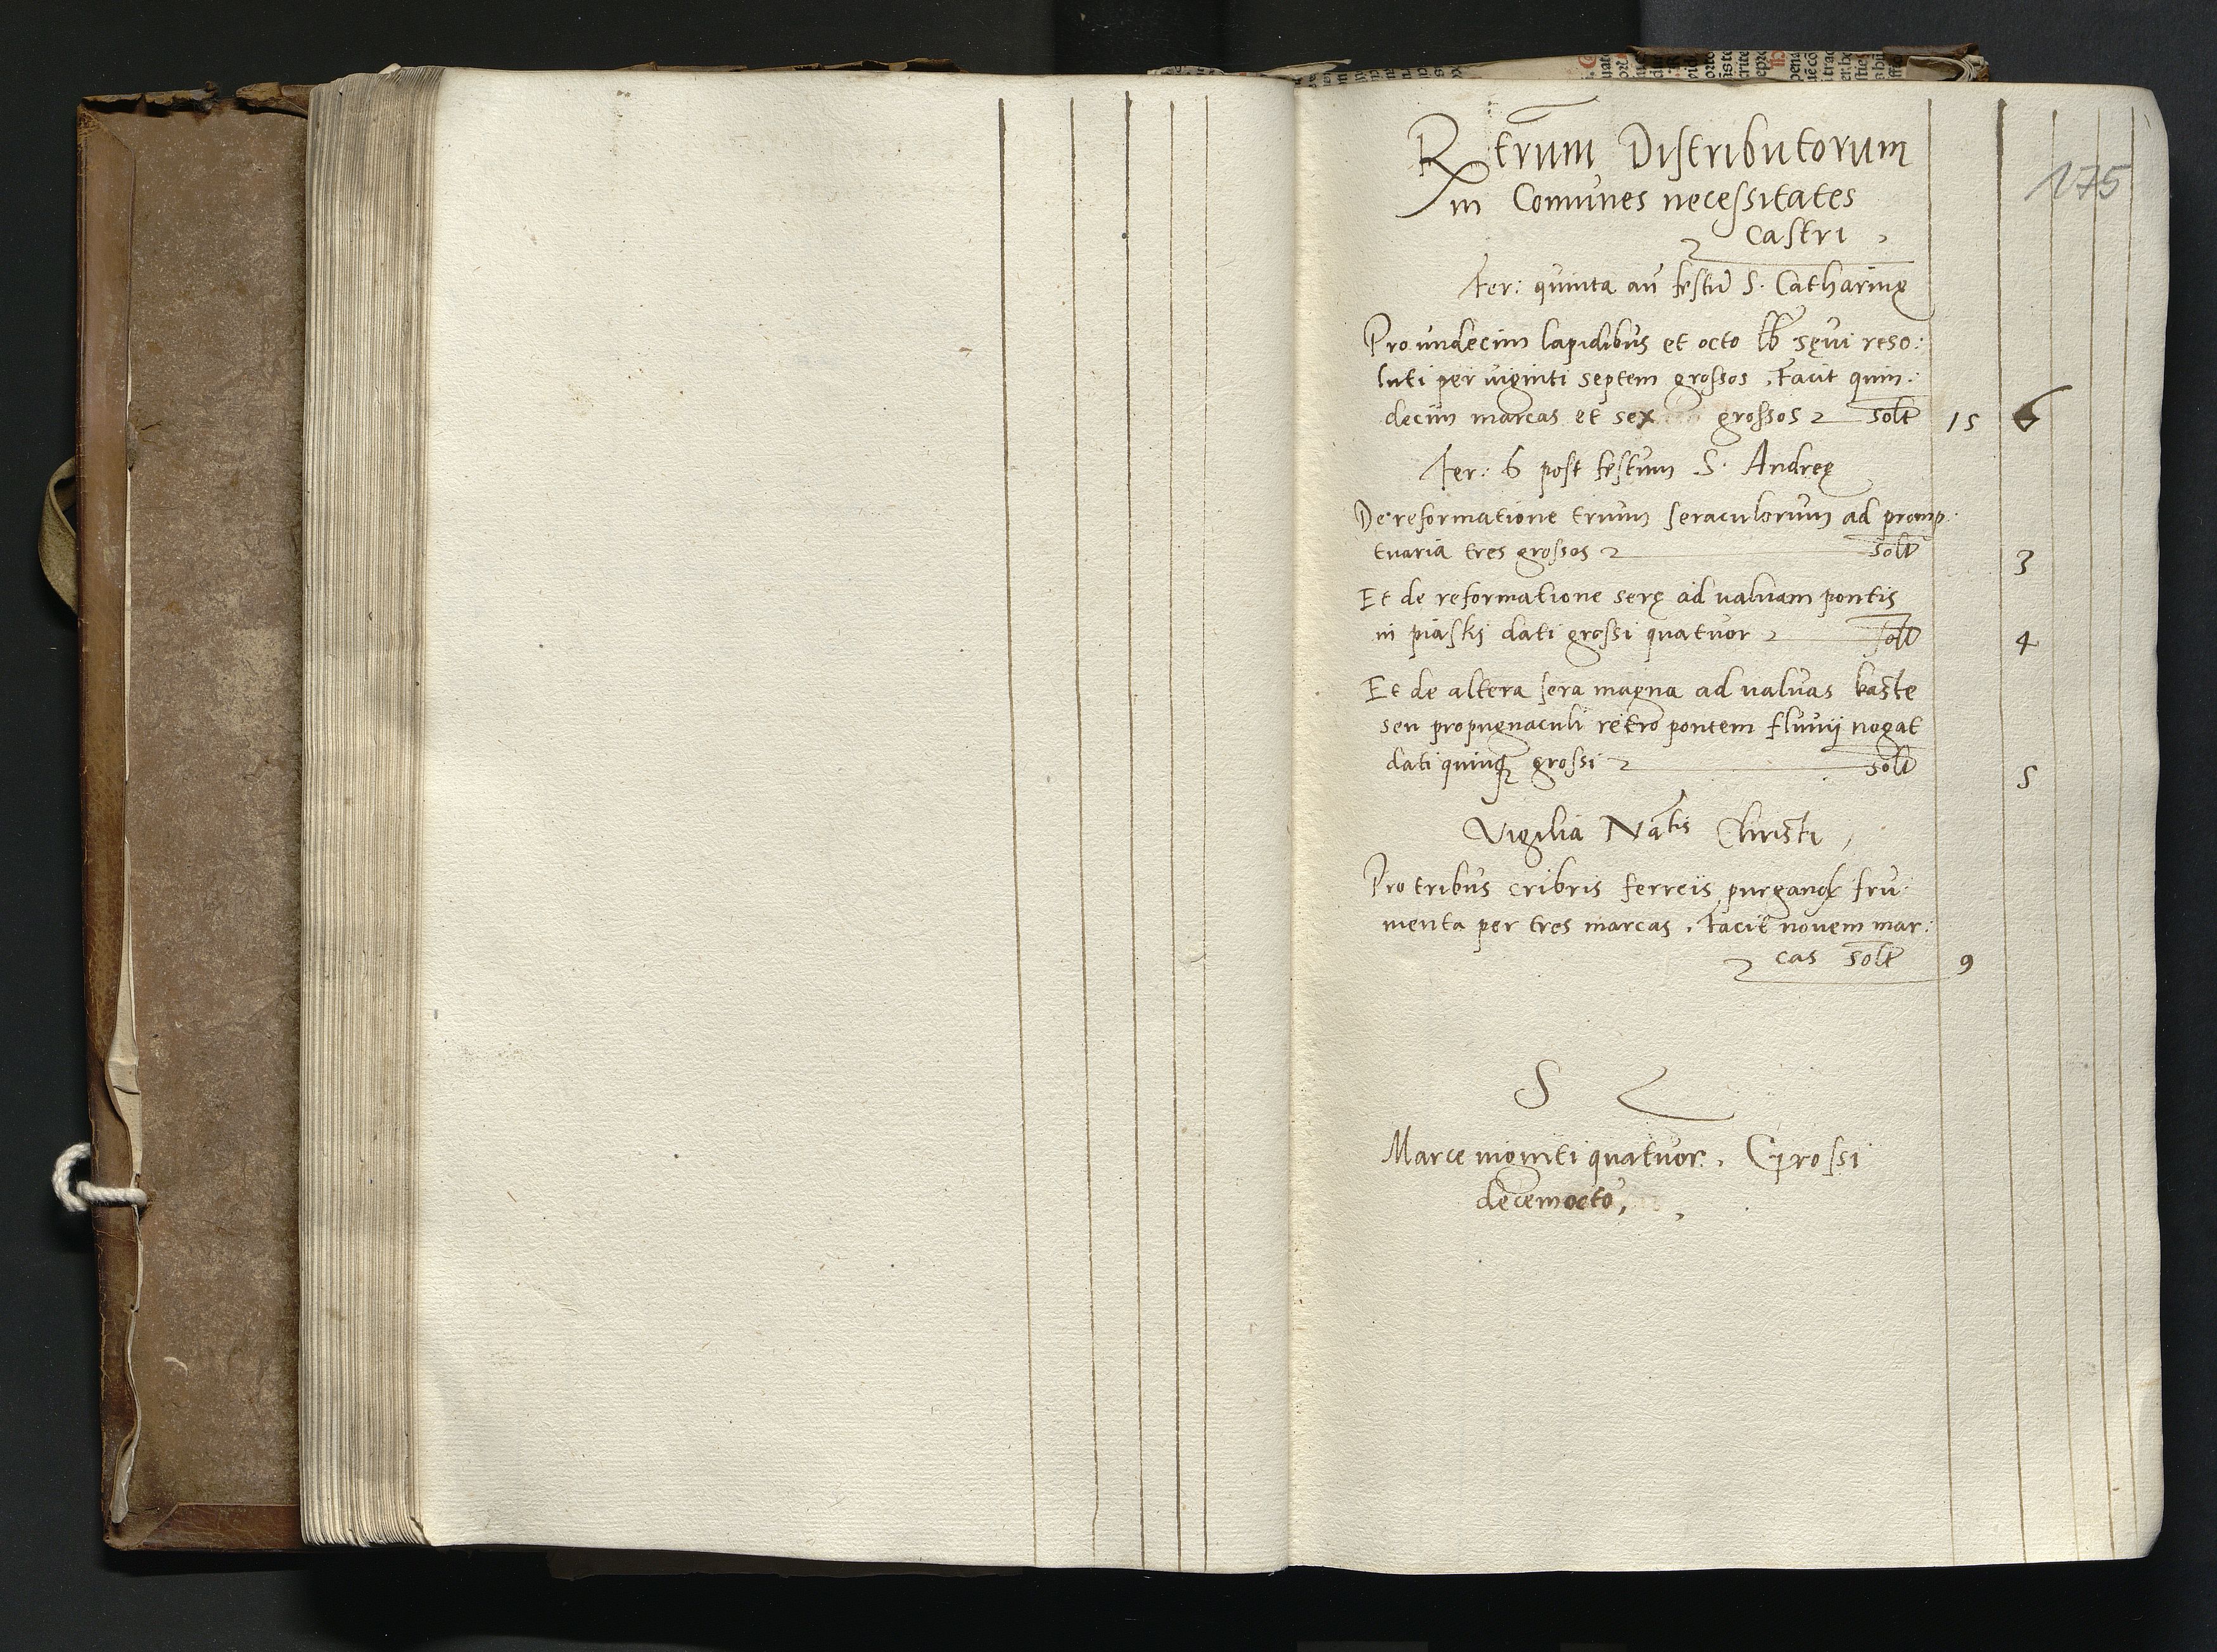 175
Rḡtrum Distributorum
in Comunes necessitates
castri
Fer: quinta an̄ festū S. Catharinę
Pro undecim lapidibus et octo lb sęvi reso:
luti per viginti septem grossos, Facit quin:
decim marcas et sex grossos solt 15 6
Fer: 6 post festum S. Andreę
De reformatione trium seraculorum ad promp:
tuaria tres grossos solt 3
Et de reformatione serę ad valvam pontis
in piaskj dati grossi quatuor solt 4
Et de altera sera magna ad valvas baste
seu propugnaculi retro pontem fluvij nogat
dati quinqꝫ grossi solt 5
Vigilia Natis Christi
Pro tribus cribris ferreis purgand fru:
menta per tres marcas, Facit novem mar:
cas solt 9
S
Marce viginti quatuor, Grossi
decemocto,